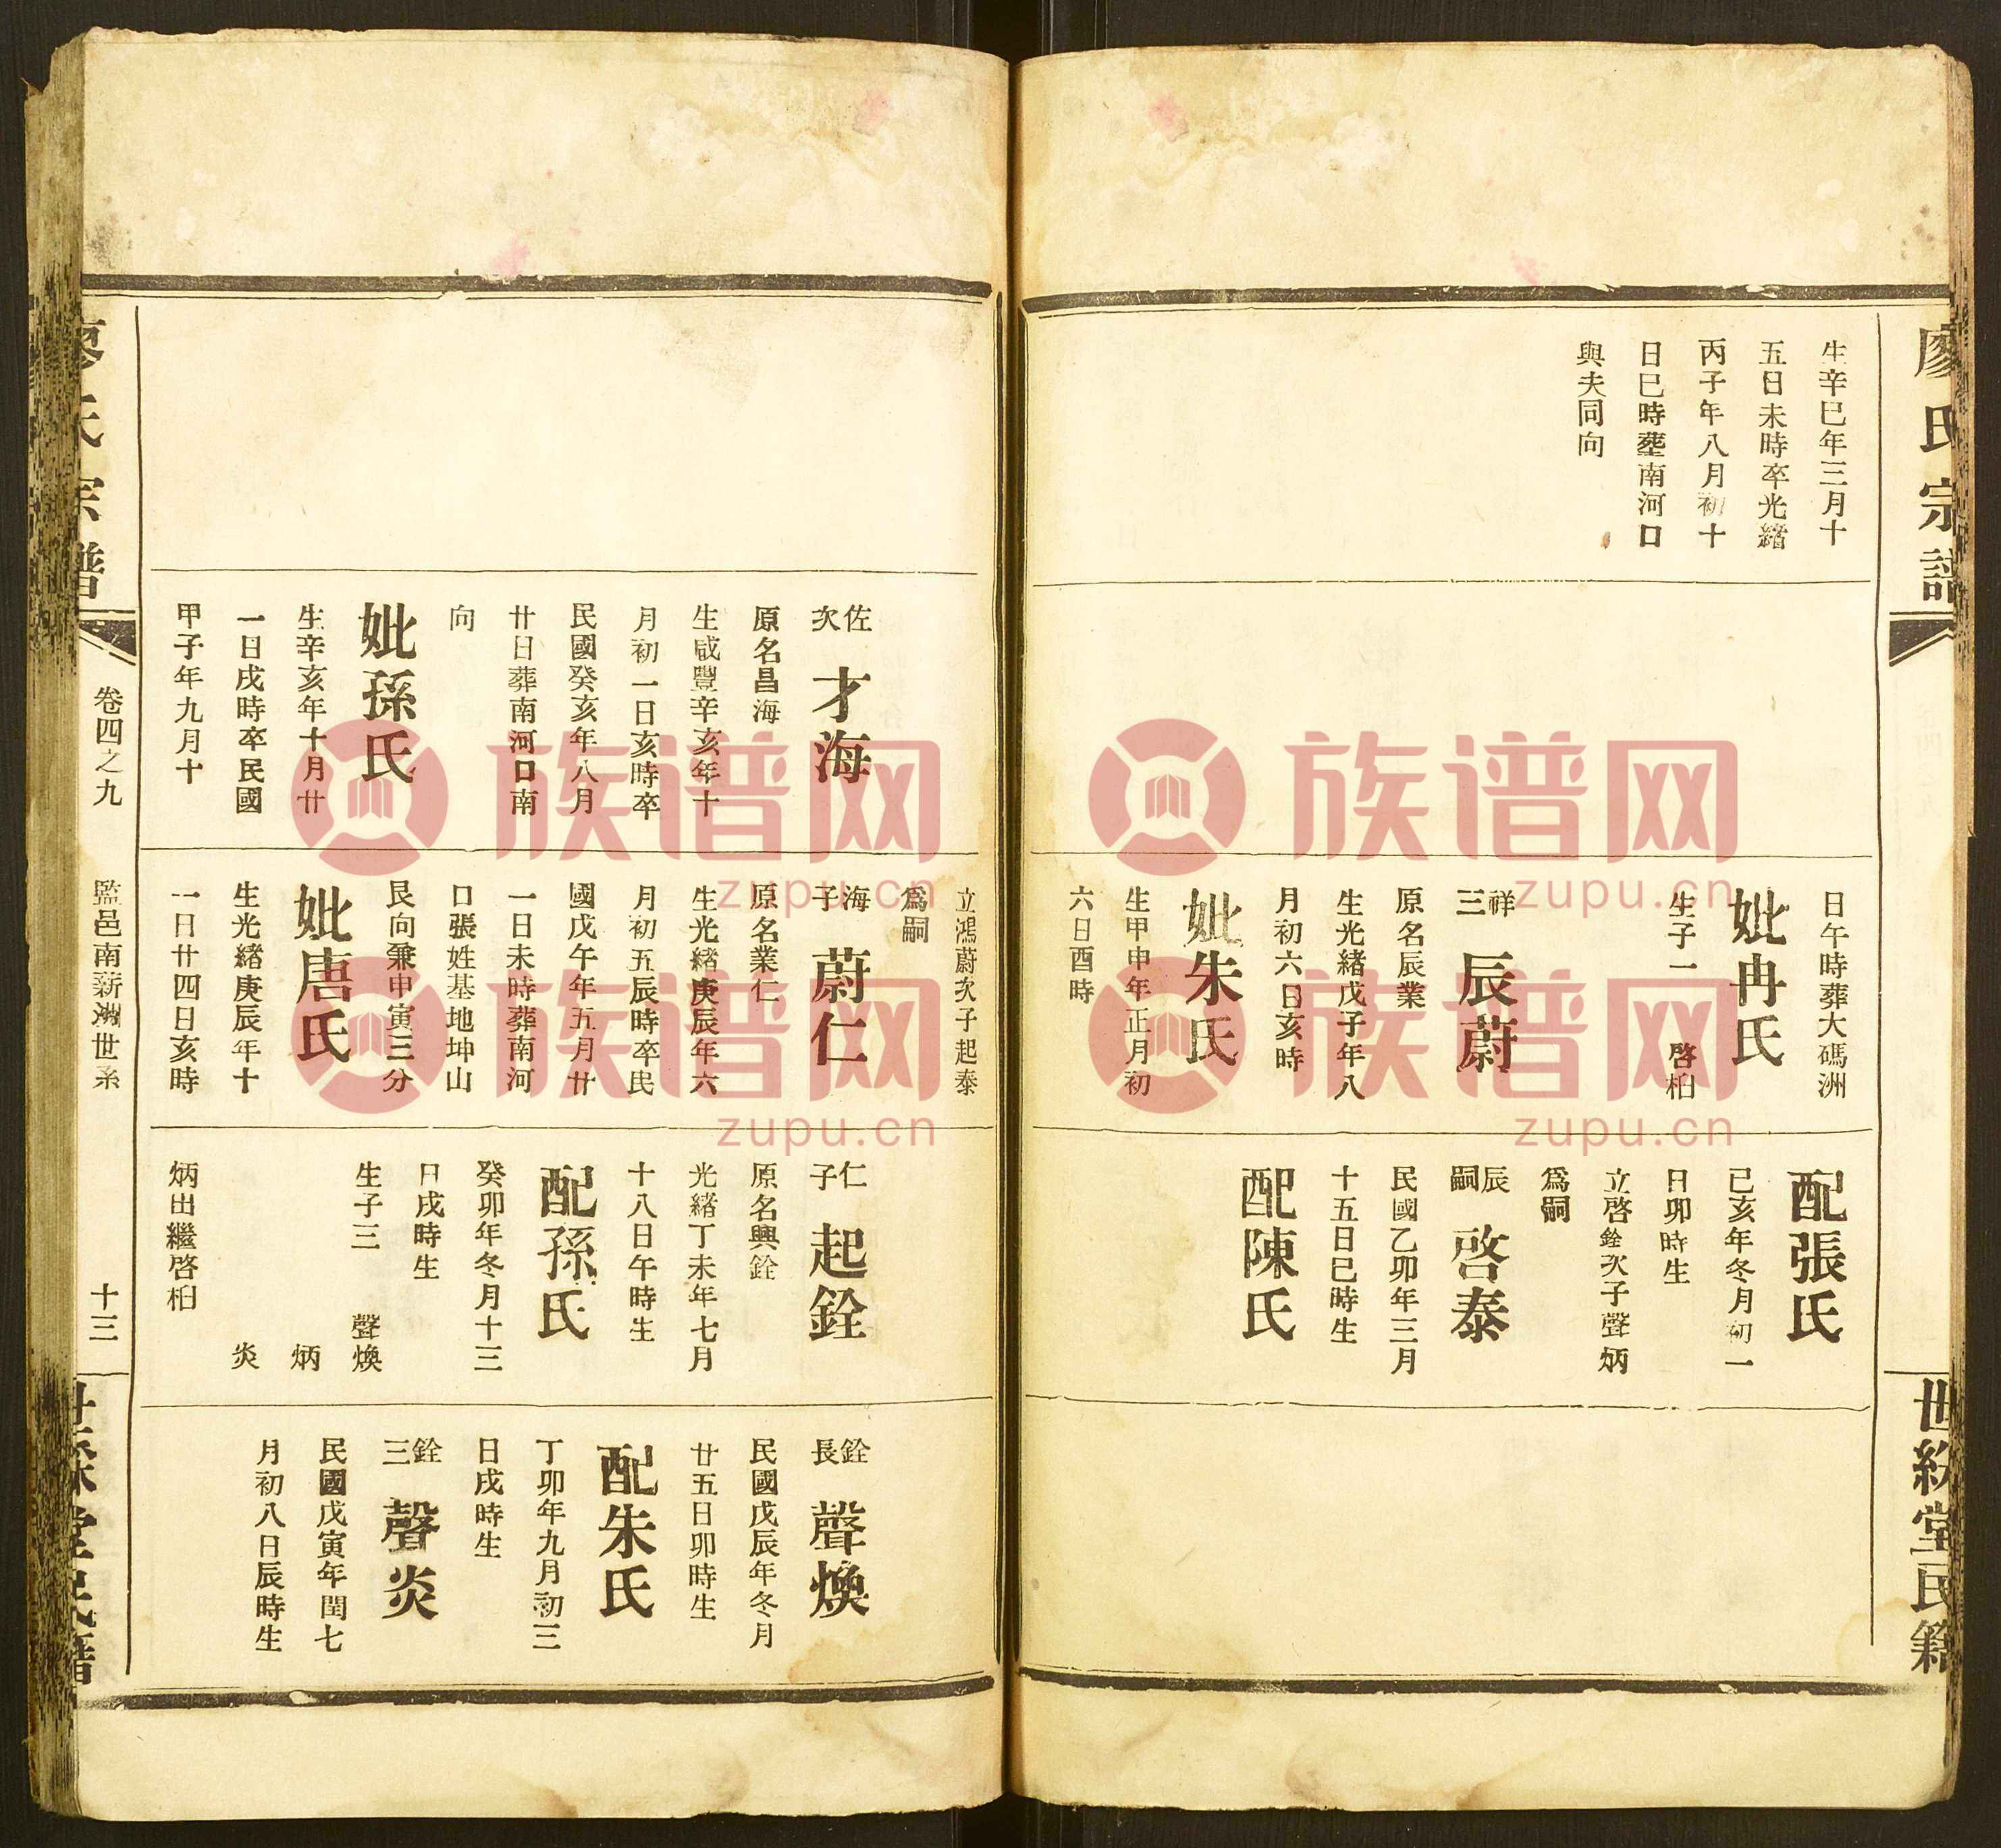 廖氏宗譜
世綵堂民籍
生辛巳年三月十
五日未時卒光緒
丙子年八月初十
日巳時塟南河口
與夫同向
日午時葬大碼洲
妣冉氏
生子一 啓柏
祥三 辰蔚
原名辰業
生光緒戊子年八
月初六日亥時
妣朱氏
生甲申年正月初
六日酉時
配張氏
己亥年冬月初一
日卯時生
立啓銓次子聲炳
爲嗣
辰嗣 啓泰
民國乙卯年三月
十五日巳時生
配陳氏
佐次 才海
原名昌海
生咸豐辛亥年十
月初一日亥時卒
民國癸亥年八月
廿日葬南河口南
向
妣孫氏
生辛亥年十月廿
一日戌時卒民國
甲子年九月十
立鴻蔚次子起泰
爲嗣
海子 蔚仁
原名業仁
生光緒庚辰年六
月初五辰時卒民
國戊午年五月廿
一日未時葬南河
口張姓基地坤山
艮向兼申寅三分
妣唐氏
生光緒庚辰年十
一日廿四日亥時
仁子 起銓
原名興銓
光緒丁未年七月
十八日午時生
配孫氏
癸卯年冬月十三
日戌時生
生子三 聲煥
炳
炎
炳出繼啓柏
銓長 聲煥
民國戊辰年冬月
廿五日卯時生
配朱氏
丁卯年九月初三
日戌時生
銓三 聲炎
民國戊寅年閏七
月初八日辰時生
廖氏宗譜
卷四之九
監邑南新洲世系
十三
世綵堂民籍
族谱网
zupu.cn
族谱网
zupu.cn
族谱网
zupu.cn
族谱网
zupu.cn